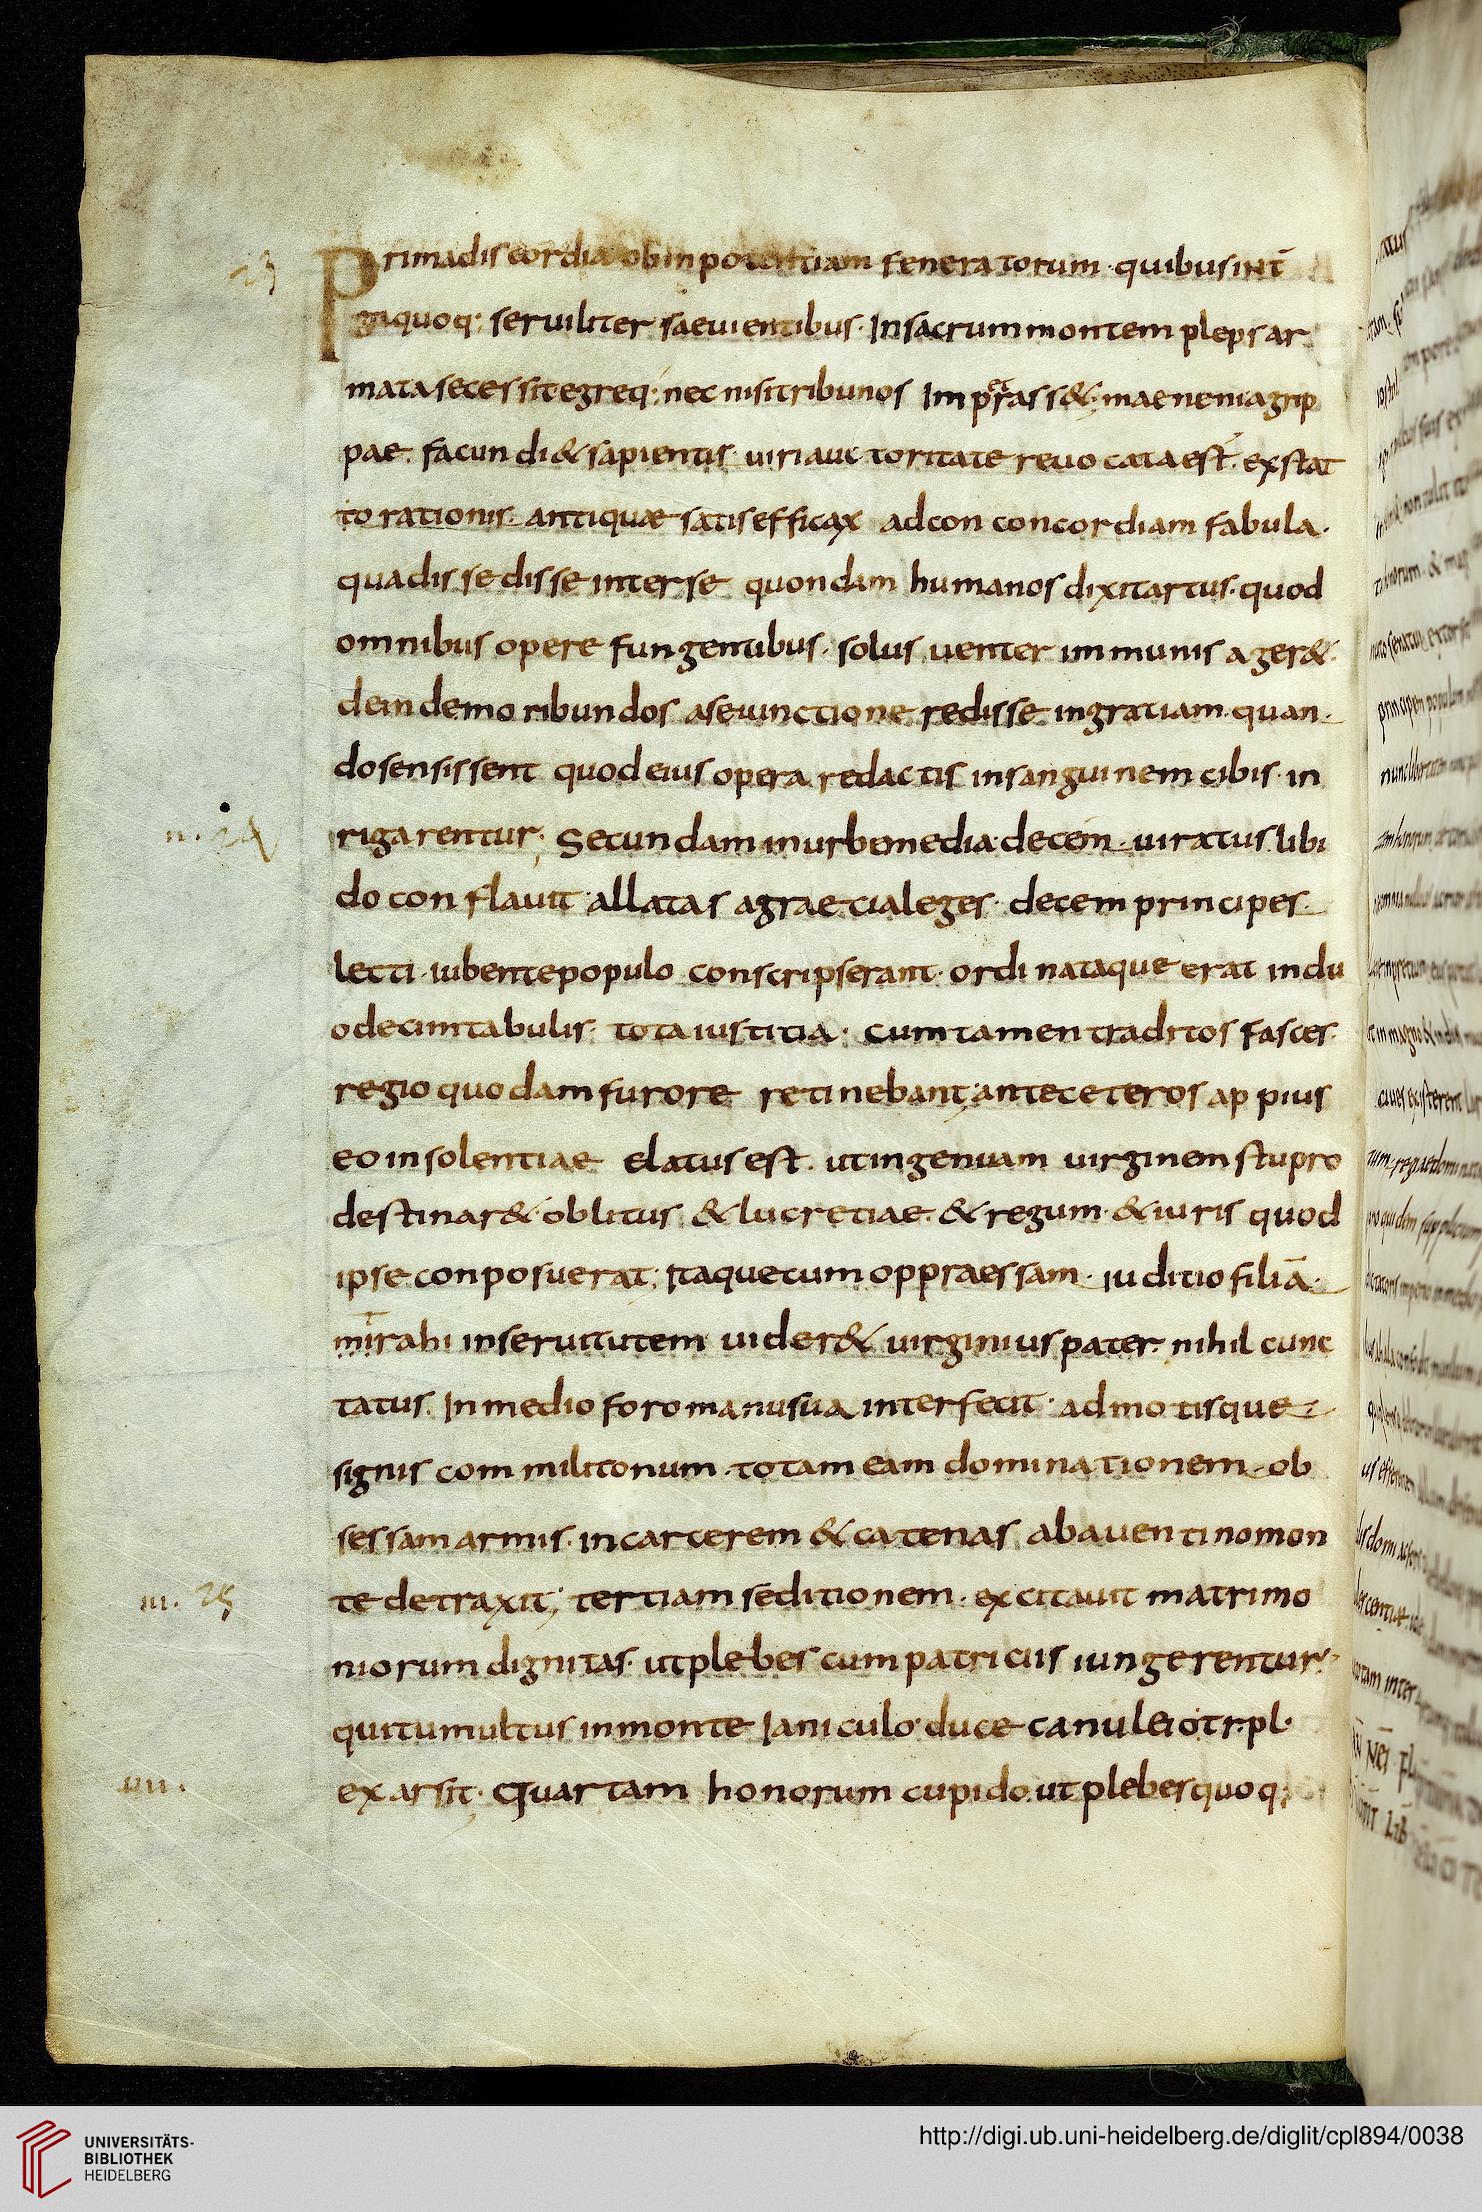 23
Prima discordia ob inpotentiam feneratorum · quibus int̄
ga quoq; serviliter saevientibus · In sacrum montem pleps ar
mata secessit egreq; nec nisi tribunos Impetrass& · maeneni agrip
pae · facundi & sapientis · viri auctoritate revocata est · exstat
to rationis · antiquæ satis efficax ad con concordiam fabula ·
qua dissedisse inter se quondam humanos dixit artus · quod
omnibus opere fungentibus · solus venter immunis ager& ·
dein demoribundos a seiunctione redisse in gratiam · quan
do sensissent quod eius opera redactis in sanguinem cibis · in
n · 24
rigarentur; Secundam in urbe media · decem viratus libi
do conflavit · allatas a graecia leges · decem principes
lecti · iubente populo conscripserant · ordinataque erat in du
odecim tabulis · tota iustitia · cum tamen traditos fasces
regio quodam furore retinebant; ante ceteros appius
eo insolentiae elatus est · ut ingenuam virginem stupro
destinar& oblitus & lucretiae · & regum · & iuris quod
ipse conposuerat; Itaque cum oppraessam · iuditio filiā ·
mirahi in servitutem vider& virginius pater · nihil cunc
tatus · In medio foro manu sua interfecit · admotisque
signis commilitonum · totam eam dominationem · ob
sessam armis · in carcerem & catenas ab aventino mon
m · 25
te detraxit; tertiam seditionem · excitavit matrimo
niorum dignitas · ut plebes cum patriciis iungerentur
qui tumultus in monte Ianiculo · duce canuleio tr · pl ·
iiii ·
exarsit · Quartam honorum cupido · ut plebes quoq;
UNIVERSITÄTS-
BIBLIOTHEK
HEIDELBERG
http://digi.ub.uni-heidelberg.de/diglit/cpl894/0038